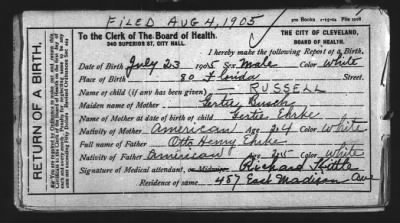 FILED AUG 4, 1905
500 Books 1-25-04 File 5008
To the Clerk of The Board of Health.
340 SUPERIOR ST, CITY HALL.
THE CITY OF CLEVELAND,
BOARD OF HEALTH.
I hereby make the following Report of a Birth.
Date of Birth July 23 1905 Sex Male Color White
Place of Birth 80 Florida Street.
Name of child (if any has been given) RUSSELL
Maiden name of Mother Gertie
Name of Mother at date of birth of child Gertie Ehrke
Nativity of Mother American Age 24 Color White
Full name of Father Otto Henry Ehrke
Nativity of Father American Age 25 Color White
Signature of Medical attendant, or Midwife Richard
Residence of same 457 East Madison Ave
RETURN OF A BIRTH.